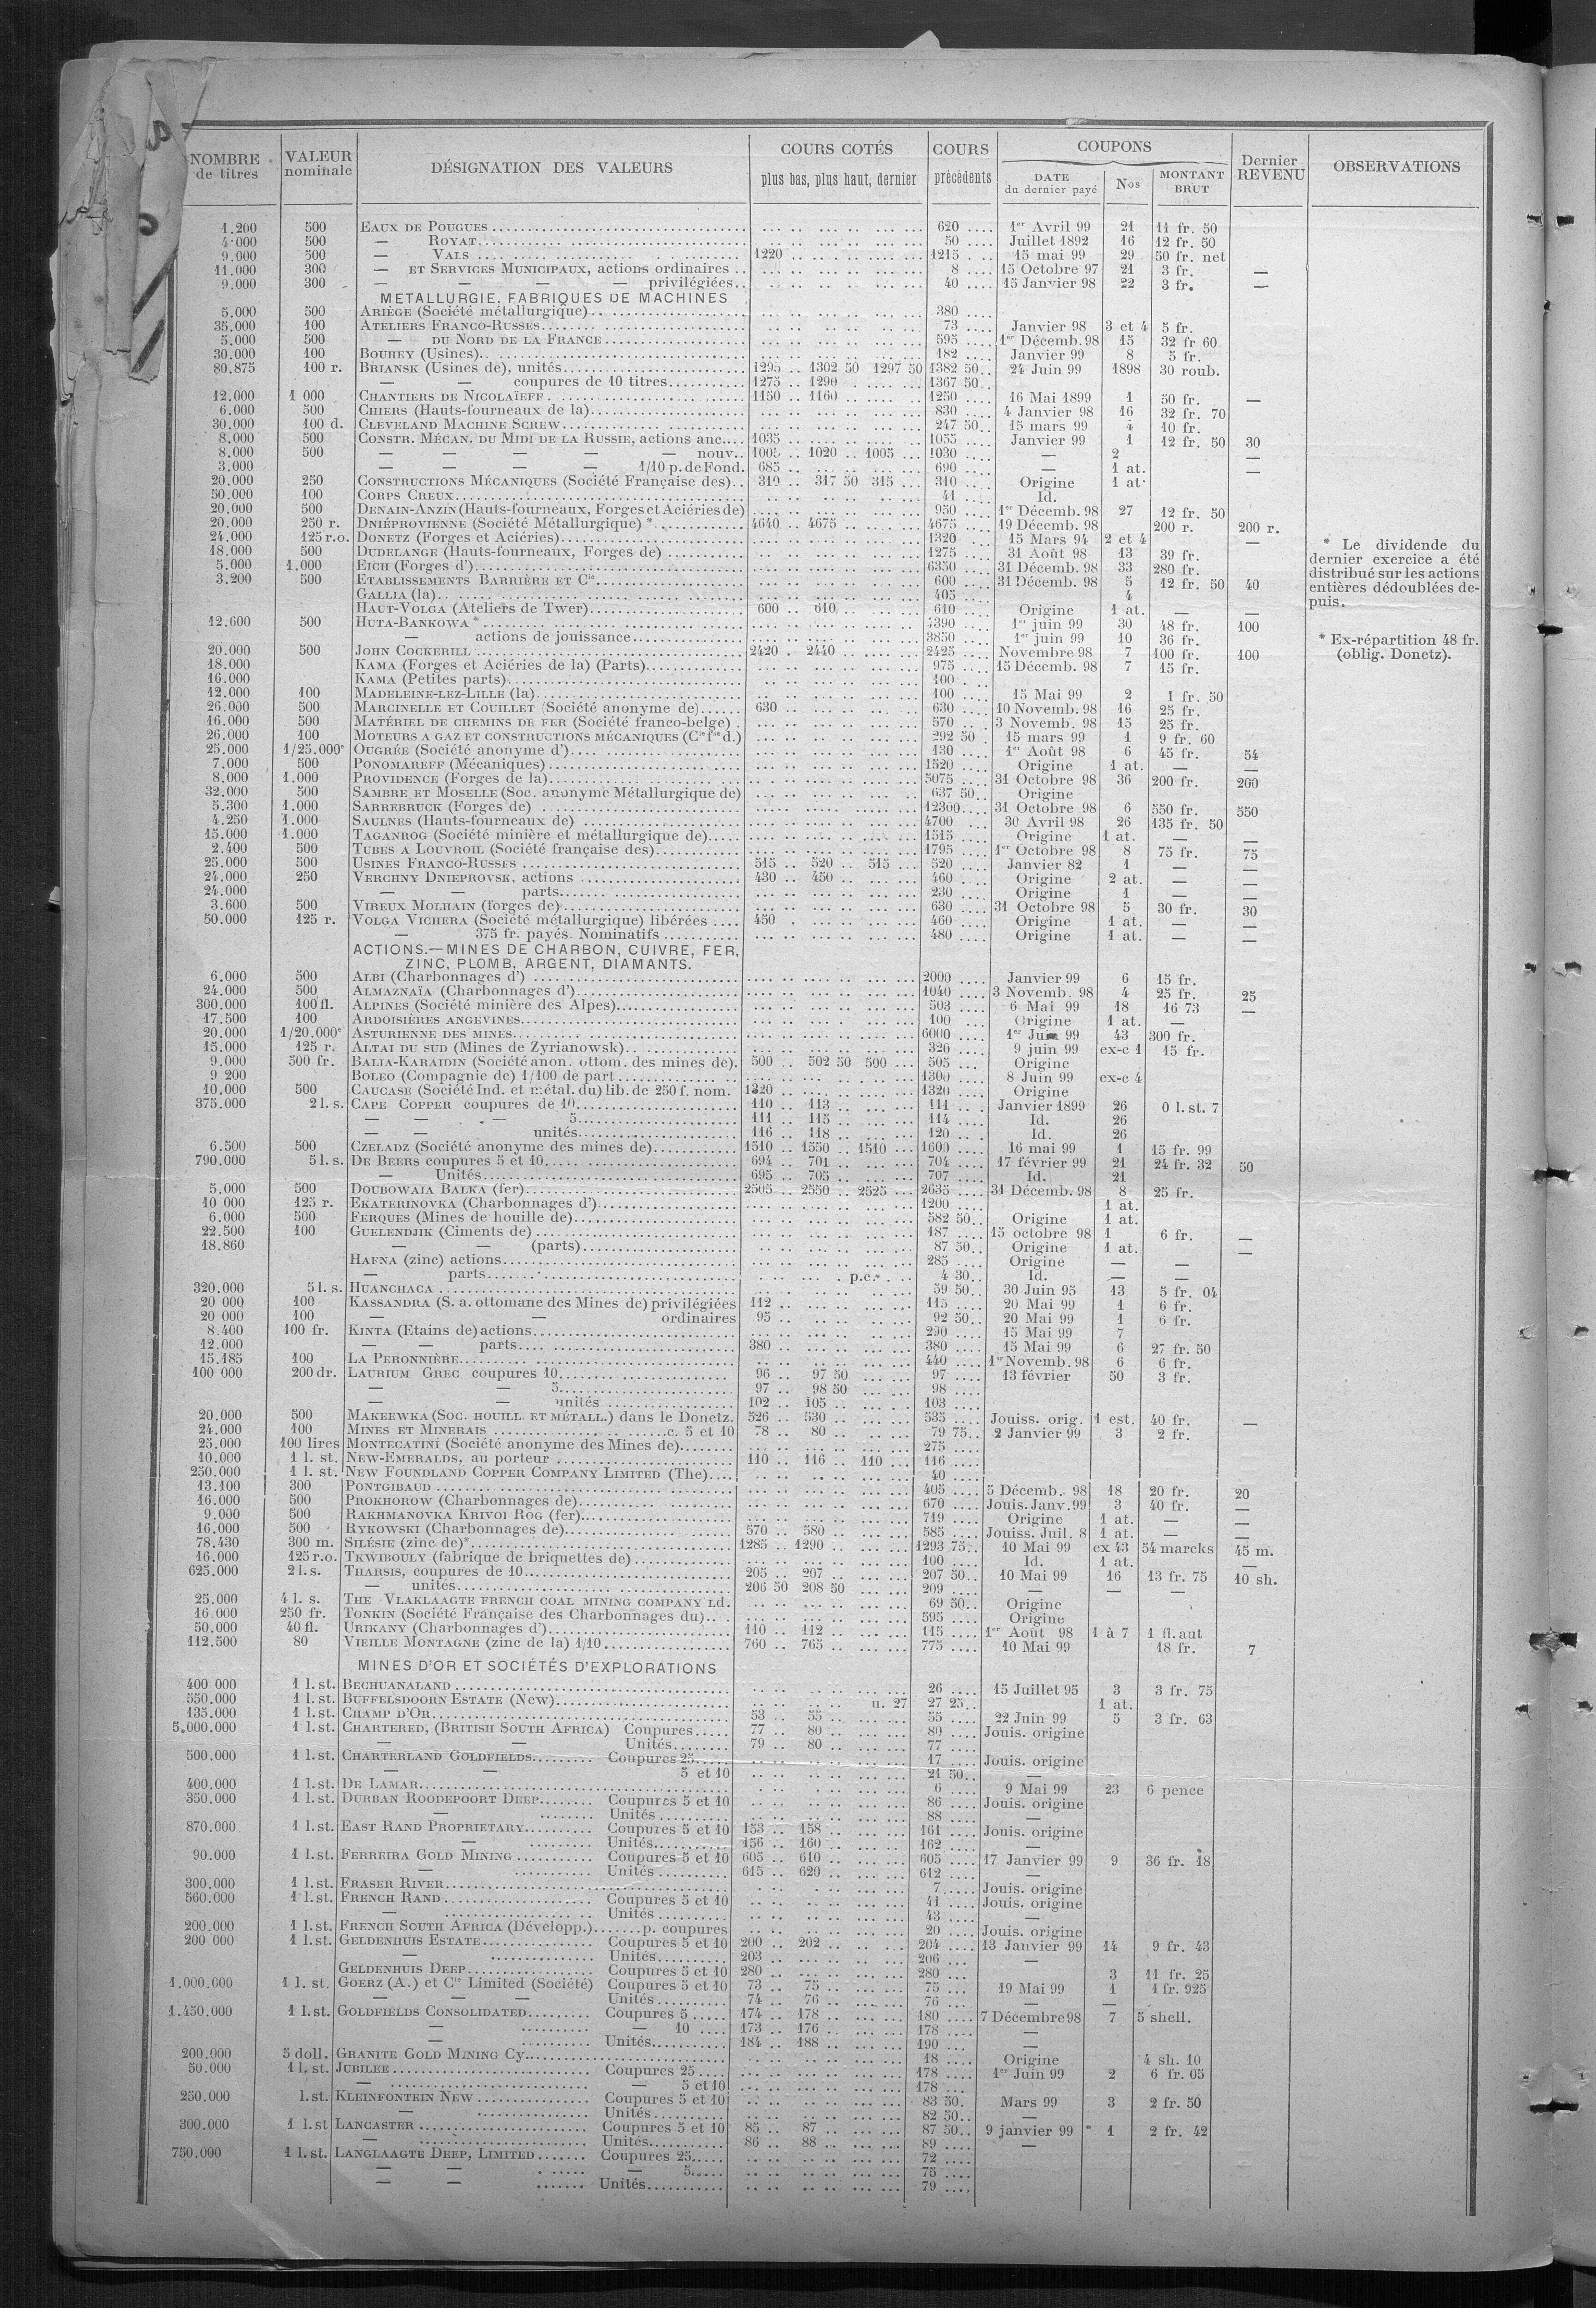 NOMBRE de titres | VALEUR nominale | DÉSIGNATION DES VALEURS | COURS COTÉS plus bas, plus haut, dernier | COURS précédents | COUPONS DATE du dernier payé | Nos | MONTANT BRUT | Dernier REVENU | OBSERVATIONS
1.200 500 EAUX DE POUGUES 620 1er Avril 99 21 11 fr. 50
4.000 500 — ROYAT 50 Juillet 1892 16 12 fr. 50
9.000 500 — VALS 1220 1215 15 mai 99 29 50 fr. net
11.000 300 — ET SERVICES MUNICIPAUX, actions ordinaires 8 15 Octobre 97 21 3 fr. —
9.000 300 — — — — privilégiées 40 15 Janvier 98 22 3 fr. —
METALLURGIE, FABRIQUES DE MACHINES
5.000 500 ARIÈGE (Société métallurgique) 380
35.000 100 ATELIERS FRANCO-RUSSES 73 Janvier 98 3 et 4 5 fr.
5.000 500 — DU NORD DE LA FRANCE 595 1er Décemb. 98 15 32 fr 60
30.000 100 BOUHEY (Usines) 182 Janvier 99 8 5 fr.
80.875 100 r. BRIANSK (Usines de), unités 1295 1302 50 1297 50 1382 50 24 Juin 99 1898 30 roub.
— — coupures de 10 titres 1275 1290 1367 50
12.000 1 000 CHANTIERS DE NICOLAÏEFF 1150 1160 1250 16 Mai 1899 1 50 fr. —
6.000 500 CHIERS (Hauts-fourneaux de la) 830 4 Janvier 98 16 32 fr. 70
30.000 100 d. CLEVELAND MACHINE SCREW 247 50 15 mars 99 4 10 fr.
8.000 500 CONSTR. MÉCAN. DU MIDI DE LA RUSSIE, actions anc. 1035 1055 Janvier 99 1 12 fr. 50 30
8.000 500 — — — — — nouv. 1005 1020 1005 1030 — 2 —
3.000 — — — — 1/10 p. de Fond. 685 690 — 1 at. —
20.000 250 CONSTRUCTIONS MÉCANIQUES (Société Française des) 310 317 50 315 310 Origine 1 at.
50.000 100 CORPS CREUX 41 Id.
20.000 500 DENAIN-ANZIN (Hauts-fourneaux, Forges et Aciéries de) 950 1er Décemb. 98 27 12 fr. 50
20.000 250 r. DNIÉPROVIENNE (Société Métallurgique) * 4640 4675 4675 19 Décemb. 98 200 r. 200 r.
24.000 125 r.o. DONETZ (Forges et Aciéries) 1320 15 Mars 94 2 et 4 —
18.000 500 DUDELANGE (Hauts-fourneaux, Forges de) 1275 31 Août 98 13 39 fr.
5.000 1.000 EICH (Forges d') 6350 31 Décemb. 98 33 280 fr.
3.200 500 ETABLISSEMENTS BARRIÈRE ET Cie 600 31 Décemb. 98 5 12 fr. 50 40
GALLIA (la) 405 4
HAUT-VOLGA (Ateliers de Twer) 600 610 610 Origine 1 at. — —
12.600 500 HUTA-BANKOWA * 1er juin 99 30 48 fr. 100
— actions de jouissance 3850 1er juin 99 10 36 fr.
20.000 500 JOHN COCKERILL 2420 2440 2425 Novembre 98 7 100 fr. 100
18.000 KAMA (Forges et Aciéries de la) (Parts) 975 15 Décemb. 98 7 15 fr.
16.000 KAMA (Petites parts) 100
12.000 100 MADELEINE-LEZ-LILLE (la) 100 15 Mai 99 2 1 fr. 50
26.000 500 MARCINELLE ET COUILLET (Société anonyme de) 630 630 10 Novemb. 98 16 25 fr.
16.000 500 MATÉRIEL DE CHEMINS DE FER (Société franco-belge) 570 3 Novemb. 98 15 25 fr.
26.000 100 MOTEURS A GAZ ET CONSTRUCTIONS MÉCANIQUES (Cie fse d.) 292 50 15 mars 99 1 9 fr. 60
25.000 1/25.000e OUGRÉE (Société anonyme d') 130 1er Août 98 6 45 fr. 54
7.000 500 PONOMAREFF (Mécaniques) 1520 Origine 1 at. — —
8.000 1.000 PROVIDENCE (Forges de la) 5075 31 Octobre 98 36 200 fr. 260
32.000 500 SAMBRE ET MOSELLE (Soc. anonyme Métallurgique de) 637 50 Origine
5.300 1.000 SARREBRUCK (Forges de) 12300 31 Octobre 98 6 550 fr. 550
4.250 1.000 SAULNES (Hauts-fourneaux de) 4700 30 Avril 98 26 135 fr. 50
15.000 1.000 TAGANROG (Société minière et métallurgique de) 1515 Origine 1 at. — —
2.400 500 TUBES A LOUVROIL (Société française des) 1795 1er Octobre 98 8 75 fr. 75
25.000 500 USINES FRANCO-RUSSES 515 520 515 520 Janvier 82 1 — —
24.000 250 VERCHNY DNIEPROVSK, actions 430 450 460 Origine 2 at. — —
24.000 — — parts 230 Origine 1 — —
3.600 500 VIREUX MOLHAIN (forges de) 630 31 Octobre 98 5 30 fr. 30
50.000 125 r. VOLGA VICHERA (Société métallurgique) libérées 450 460 Origine 1 at. — —
— 375 fr. payés. Nominatifs 480 Origine 1 at. — —
* Le dividende du
dernier exercice a été
distribué sur les actions
entières dédoublées de-
puis.
* Ex-répartition 48 fr.
(oblig. Donetz).
ACTIONS.—MINES DE CHARBON, CUIVRE, FER,
ZINC, PLOMB, ARGENT, DIAMANTS.
6.000 500 ALBI (Charbonnages d') 2000 Janvier 99 6 15 fr.
24.000 500 ALMAZNAÏA (Charbonnages d') 1040 3 Novemb. 98 4 25 fr. 25
300.000 100 fl. ALPINES (Société minière des Alpes) 503 6 Mai 99 18 16 73 —
17.500 100 ARDOISIÈRES ANGEVINES 100 Origine 1 at. —
20.000 1/20.000e ASTURIENNE DES MINES 6000 1er 99 43 300 fr.
15.000 125 r. ALTAI DU SUD (Mines de Zyrianowsk) 320 9 juin 99 ex-c 1 15 fr.
9.000 500 fr. BALIA-KARAIDIN (Société anon. ottom. des mines de) 500 502 50 500 505 Origine
9 200 BOLEO (Compagnie de) 1/100 de part 1300 8 Juin 99 ex-c 4
10.000 500 CAUCASE (Société Ind. et métal. du) lib. de 250 f. nom. 1320 1320 Origine
375.000 2 l. s. CAPE COPPER coupures de 10 110 113 111 Janvier 1899 26 0 l. st. 7
— — 5 111 115 114 Id. 26
— — unités 116 118 120 Id. 26
6.500 500 CZELADZ (Société anonyme des mines de) 1510 1550 1510 1600 16 mai 99 1 15 fr. 99
790.000 5 l. s. DE BEERS coupures 5 et 10 694 701 704 17 février 99 21 24 fr. 32 50
— Unités 695 705 707 Id. 21
5.000 500 DOUBOWAIA BALKA (fer) 2505 2550 2525 2635 31 Décemb. 98 8 25 fr.
10 000 125 r. EKATERINOVKA (Charbonnages d') 1200 1 at.
6.000 500 FERQUES (Mines de houille de) 582 50 Origine 1 at.
22.500 100 GUELENDJIK (Ciments de) 187 15 octobre 98 1 6 fr. —
18.860 — — (parts) 87 50 Origine 1 at. —
HAFNA (zinc) actions 285 Origine — —
— parts p.c. 4 30 Id. — —
320.000 5 l. s. HUANCHACA 59 50 30 Juin 95 13 5 fr. 04
20 000 100 KASSANDRA (S. a. ottomane des Mines de) privilégiées 112 115 20 Mai 99 1 6 fr.
20 000 100 — — ordinaires 95 92 50 20 Mai 99 1 6 fr.
8.400 100 fr. KINTA (Etains de) actions 290 15 Mai 99 7
12.000 — — parts 380 380 15 Mai 99 6 27 fr. 50
15.185 100 LA PERONNIÈRE 440 1er Novemb. 98 6 6 fr.
100 000 200 dr. LAURIUM GREC coupures 10 96 97 50 97 13 février 50 3 fr.
— — 5 97 98 50 98
— — unités 102 105 103
20.000 500 MAKEEWKA (SOC. HOUILL. ET MÉTALL.) dans le Donetz. 526 530 535 Jouiss. orig. 1 est. 40 fr. —
24.000 100 MINES ET MINERAIS c. 5 et 10 78 80 79 75 2 Janvier 99 3 2 fr.
25.000 100 lires MONTECATINI (Société anonyme des Mines de) 275
10.000 1 l. st. NEW-EMERALDS, au porteur 110 116 110 116
250.000 1 l. st. NEW FOUNDLAND COPPER COMPANY LIMITED (The) 40
13.100 300 PONTGIBAUD 405 5 Décemb. 98 18 20 fr. 20
16.000 500 PROKHOROW (Charbonnages de) 670 Jouis. Janv. 99 3 40 fr. —
9.000 500 RAKHMANOVKA KRIVOI ROG (fer) 719 Origine 1 at. — —
16.000 500 RYKOWSKI (Charbonnages de) 570 580 585 Jouiss. Juil. 8 1 at. — —
78.430 300 m. SILÉSIE (zinc de)* 1285 1290 1293 75 10 Mai 99 ex 43 54 marcks 45 m.
16.000 125 r.o. TKWIBOULY (fabrique de briquettes de) 100 Id. 1 at. —
625.000 2 l. s. THARSIS, coupures de 10 205 207 207 50 10 Mai 99 16 13 fr. 75 10 sh.
— unités 206 50 208 50 209 — — —
25.000 4 l. s. THE VLAKLAAGTE FRENCH COAL MINING COMPANY Ld. 69 50 Origine
16.000 250 fr. TONKIN (Société Française des Charbonnages du) 595 Origine
50.000 40 fl. URIKANY (Charbonnages d') 110 112 115 1er Août 98 1 à 7 1 fl. aut
112.500 80 VIEILLE MONTAGNE (zinc de la) 1/10 760 765 775 10 Mai 99 18 fr. 7
MINES D'OR ET SOCIÉTÉS D'EXPLORATIONS
400 000 1 l. st. BECHUANALAND 26 15 Juillet 95 3 3 fr. 75
550.000 1 l. st. BUFFELSDOORN ESTATE (New) u. 27 27 25 1 at.
135.000 1 l. st. CHAMP D'OR 53 55 55 22 Juin 99 5 3 fr. 63
5.000.000 1 l. st. CHARTERED, (BRITISH SOUTH AFRICA) Coupures 77 80 80 Jouis. origine
— — Unités 79 80 77
500.000 1 l. st. CHARTERLAND GOLDFIELDS Coupures 25 17 Jouis. origine
— — 5 et 10 21 50 —
400.000 1 l. st. DE LAMAR 6 9 Mai 99 23 6 pence
350.000 1 l. st. DURBAN ROODEPOORT DEEP Coupures 5 et 10 86 Jouis. origine
— Unités 88 —
870.000 1 l. st. EAST RAND PROPRIETARY Coupures 5 et 10 153 158 161 Jouis. origine
— Unités 156 160 162 —
90.000 1 l. st. FERREIRA GOLD MINING Coupures 5 et 10 605 610 605 17 Janvier 99 9 36 fr. 18
— Unités 615 620 612 —
300.000 1 l. st. FRASER RIVER 7 Jouis. origine
560.000 1 l. st. FRENCH RAND Coupures 5 et 10 41 Jouis. origine
— Unités 43 —
200.000 1 l. st. FRENCH SOUTH AFRICA (Développ.) p. coupures 20 Jouis. origine
200 000 1 l. st. GELDENHUIS ESTATE Coupures 5 et 10 200 202 204 13 Janvier 99 14 9 fr. 43
— Unités 203 206 —
GELDENHUIS DEEP Coupures 5 et 10 280 280 3 11 fr. 25
1.000.000 1 l. st. GOERZ (A.) et Cie Limited (Société) Coupures 5 et 10 73 75 75 19 Mai 99 1 1 fr. 925
— — — Unités 74 76 76 — —
1.450.000 1 l. st. GOLDFIELDS CONSOLIDATED Coupures 5 174 178 180 7 Décembre 98 7 5 shell.
— — 10 173 176 178 —
— Unités 184 188 190 —
200.000 5 doll. GRANITE GOLD MINING Cy. 18 Origine 4 sh. 10
50.000 1 l. st. JUBILEE Coupures 25 178 1er Juin 99 2 6 fr. 05
— — 5 et 10 178
250.000 l. st. KLEINFONTEIN NEW Coupures 5 et 10 83 50 Mars 99 3 2 fr. 50
— Unités 82 50 —
300.000 1 l. st LANCASTER Coupures 5 et 10 85 87 87 50 9 janvier 99 * 1 2 fr. 42
— Unités 86 88 89 —
750.000 1 l. st. LANGLAAGTE DEEP, LIMITED Coupures 25 72
— — — 5 75
— — Unités 79